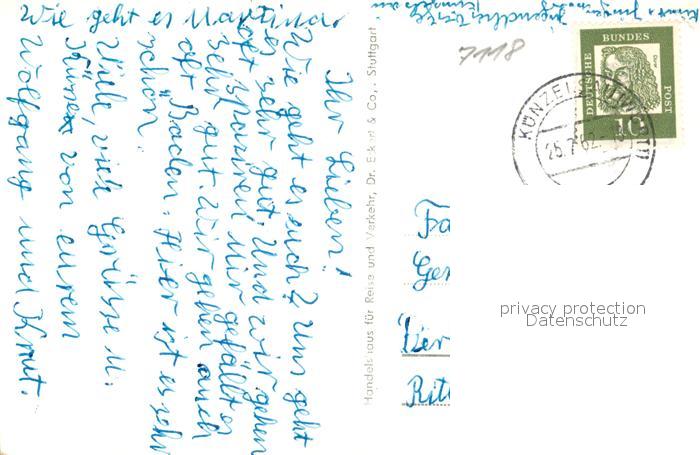 Wie geht es Martina?
Ihr Lieben!
Wie geht es euch? Uns geht
es sehr gut. Und wir gehen
oft spazieren. Mir gefällt es
sehr gut. Wir gehen auch
oft Baden. Hier ist es sehr
schön.
Viele, viele Grüsse u.
Küsse von eurem
Wolfgang und Knut.
Handelshaus für Reise und Verkehr, Dr. Eckert & Co., Stuttgart
7118
DEUTSCHE
BUNDES
POST
Dürer
10
KÜNZELSAU
25.7.62
Fa
Ger
Vier
Rit
privacy protection
Datenschutz